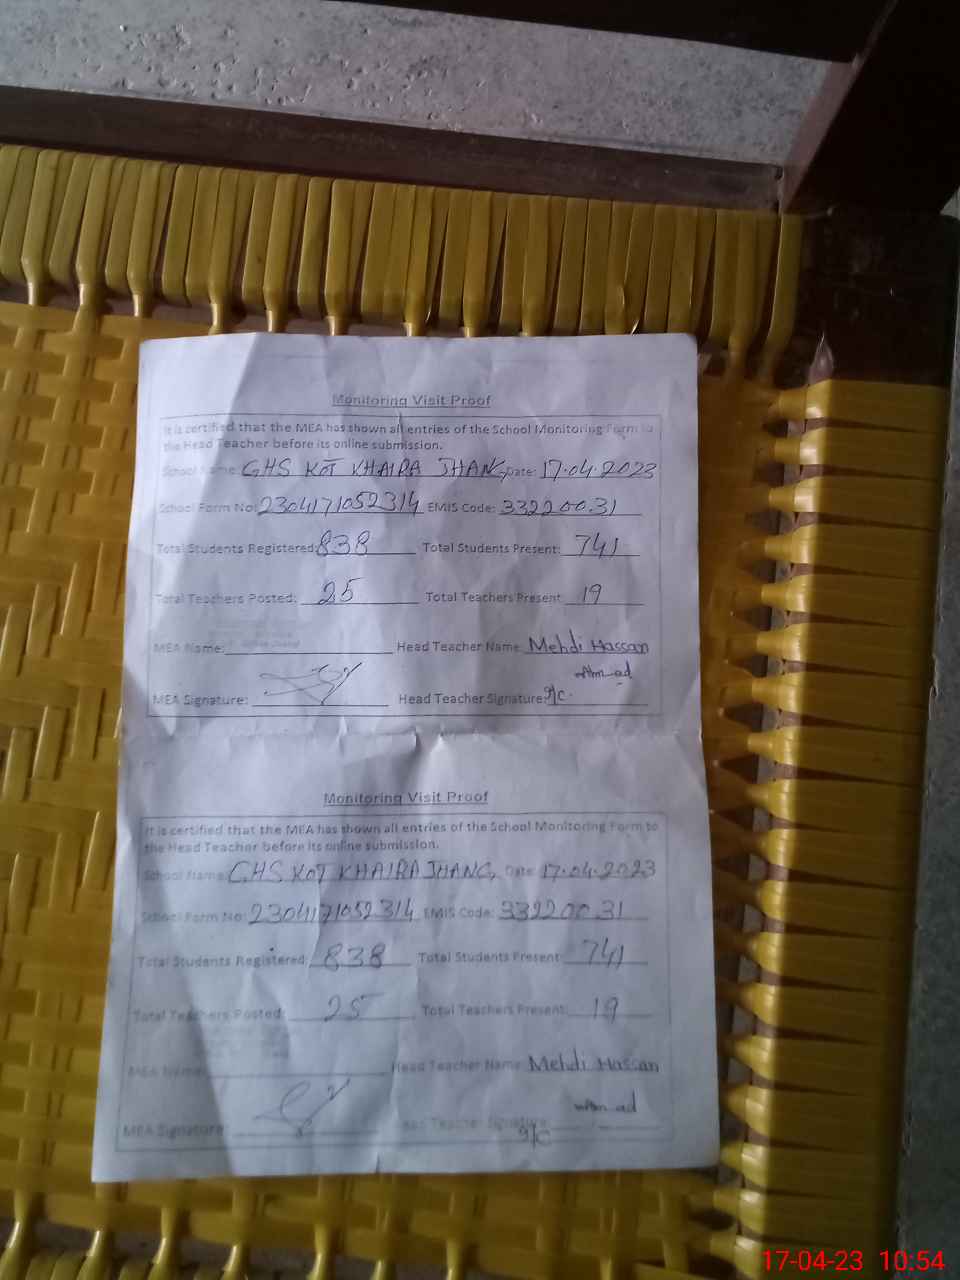 Monitoring Visit Proof
It is certified that the MEA has shown all entries of the School Monitoring Form to
the Head Teacher before its online submission.
School Name: GHS KOT KHAIRA JHANG Date: 17.04.2023
School Form No: 2304171052314 EMIS Code: 33220031
Total Students Registered: 838 Total Students Present: 741
Total Teachers Posted: 25 Total Teachers Present: 19
MEA Name: Head Teacher Name: Mehdi Hassan
MEA Signature: Head Teacher Signature: I/C
Monitoring Visit Proof
It is certified that the MEA has shown all entries of the School Monitoring Form to
the Head Teacher before its online submission.
School Name: GHS KOT KHAIRA JHANG, Date: 17.04.2023
School Form No: 2304171052314 EMIS Code: 33220031
Total Students Registered: 838 Total Students Present: 741
Total Teachers Posted: 25 Total Teachers Present: 19
MEA Name: Head Teacher Name: Mehdi Hassan
MEA Signature: Head Teacher Signature: I/C
17-04-23 10:54